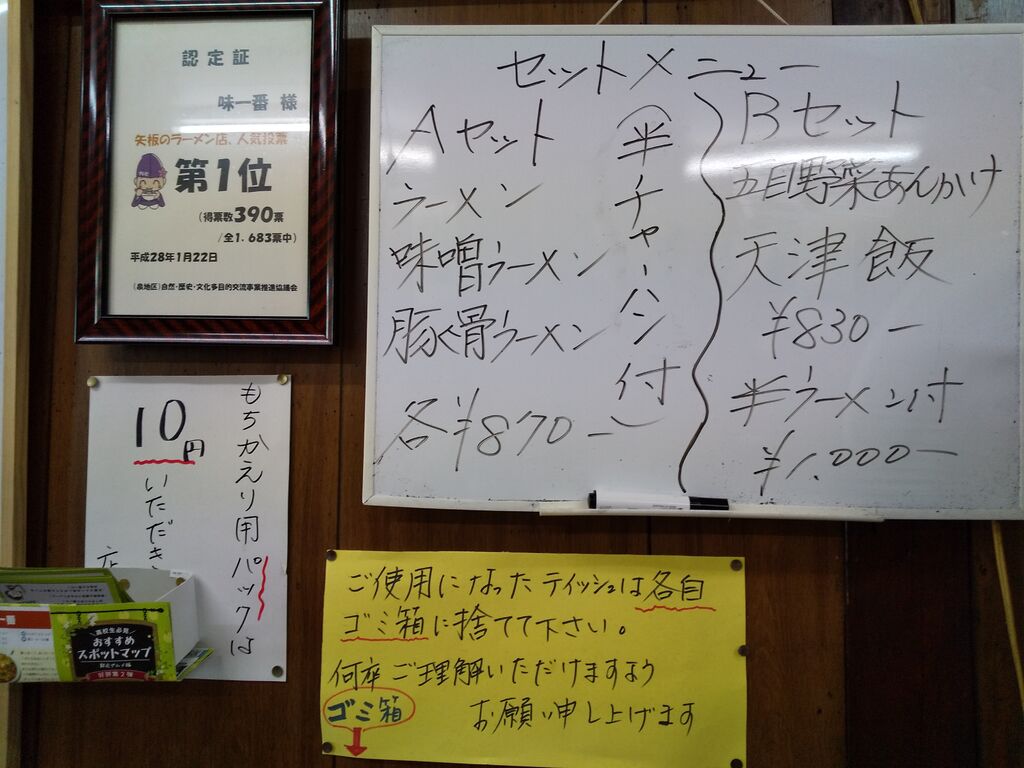 認定証
味一番 様
矢板のラーメン店、人気投票
第1位
(得票数390票
/全1,683票中)
平成28年1月22日
(泉地区)自然・歴史・文化多目的交流事業推進協議会
セットメニュー
Aセット
ラーメン
味噌ラーメン
豚骨ラーメン
各¥870ー
(半チャーハン付)
Bセット
五目野菜あんかけ
天津飯
¥830ー
半ラーメン付
¥1.000ー
もちかえり用パックは
10円
いただき
店
高校生必見
おすすめ
スポットマップ
好評第2弾
ご使用になったティッシュは各自
ゴミ箱に捨てて下さい。
何卒ご理解いただけますよう
お願い申し上げます
ゴミ箱